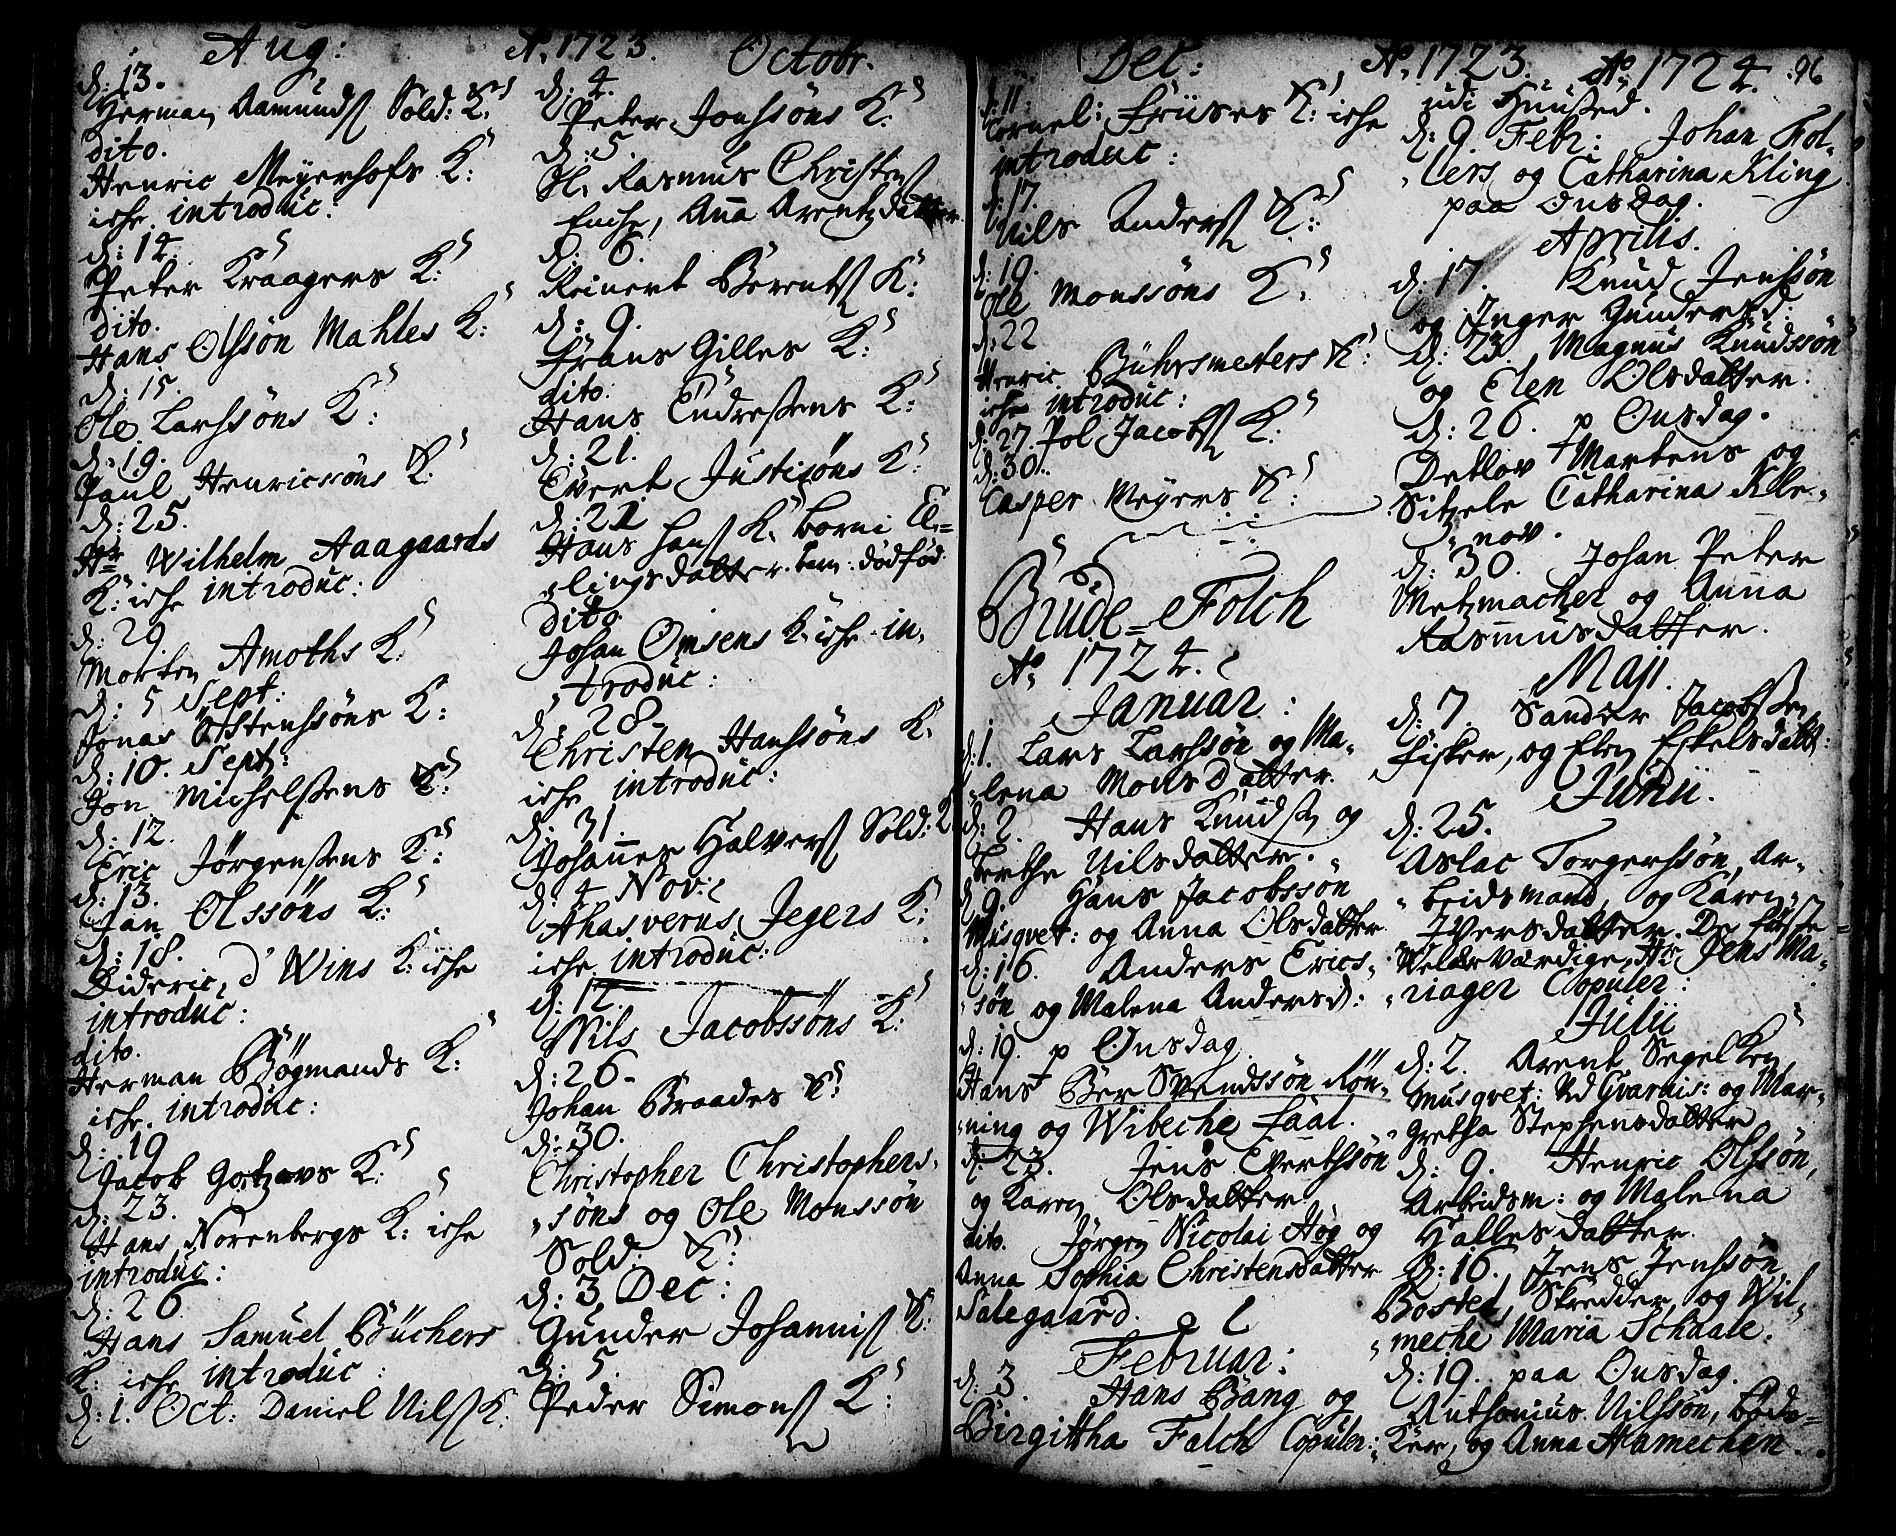 Aug: Aº 1723. Octobr.
d: 13.
Herman Aamunds Sold: K:
dito.
Henric Meÿerhofs K:
iche introduc:
d: 14.
Peter Kraagers K:
dito.
Hans Olsson Mahles K:
d: 15.
Ole Larssøns K:
d: 19.
Paul Henricsøns K:
d: 25.
Hr Wilhelm Aagaards
K: iche introduc:
d: 29
Morten Amoths K:
d: 5 Sept:
Jonas Østenssøns K:
d: 10. Sept:
Jon Michelsens K:
d: 12.
Eric Jørgensens K:
d: 13.
Jan Olssøns K:
d: 18.
Dideric d' Wins K: iche
introduc:
dito.
Herman Bøgmands K:
iche introduc:
d: 19
Jacob K:
d: 23.
Hans Norenbergs K: iche
introduc:
d: 26
Hans Samuel Büchers
K: iche introduc:
d: 1. Oct: Daniel Nils K:
d: 4.
Peter Jonssøns K:
d: 5.
Sl. Rasmus Christens
Enche, Anna Arentzdatter
d: 6.
Reinert Berents K:
d: 9.
Frans Gilles K:
dito:
Hans Endresens K:
d: 21.
Evert Justisøns K:
d: 22
Hans Hans K: Borni El=
lingsdatter. barn: dødfød
Dito
Johan Omsens K: iche in,
troduc:
d: 28.
Christen Hanssøns K:
iche introduc:
d: 31.
Johannes Halvers Sold: K
d: 4 Nov:
Ahasverus Jegers K:
iche introduc:
d: 12.
Nils Jacobssøns K:
d: 26.
Johan Braades K:
d: 30.
Christopher Christophers,
søns og Ole Monssøn
Sold: K:
d: 3, Dec:
Gunder Johannis K:
d: 5.
Peder Simons K:
Dec: Aº 1723. Aº 1724. 96
d: 11.
Cornel: Friises K: iche
introduc:
d: 17.
Nils Anders K:
d: 19.
Ole Monssøns K:
d: 22
Henric Bührsmesters K:
iche introduc:
d: 27 Pol Jacobs K:
d: 30.
Casper Meÿers K:
Brude=Folch
Aº 1724.
Januar:
d: 1. Lars Larssøn og Ma,
lena Monsdatter.
d: 2. Hans Knuds og
Berthe Nilsdatter.
d: 9. Hans Jacobssøn
Musqvet: og Anna Olsdatter
d: 16. Anders Erics,
søn og Malena Andersd:
d: 19. p Onsdag
Hans Ber Svendssøn Røn,
ning og Wibeche Faal.
d: 23. Jens Evertssøn
og Karen Olsdatter
dito. Jørgen Nicolai Høg og
Anna Sophia Christensdatter
Salegaard.
Februar:
d: 3. Hans Bang og
Birgittha Falch Copuler:
udi Huused.
d: 9. Febr: Johan Fol,
lers og Catharina Kling
paa Onsdag.
Aprilis.
d: 17. Knud Jenssøn
og Inger Gundersd:
d: 23. Magnus Knudssøn
og Elen Olsdatter.
d: 26. p Onsdag.
Detlov Martens og
Sitzele Catharina Kle,
nov.
d: 30. Johan Peter
Metzmacher og Anna
Rasmusdatter.
Maji.
d: 7. Sander Jacobsen
Fisker, og Elen Eskelsdatt:
Junii.
d: 25.
Aslac Torgerssøn, Ar,
beidsmand, og Karen
Iversdatter. De
Welærværdige, Hr Jens Ma,
riager Copuler:
Julii
d: 2. Arent Segelken
Musqvet: Ved Gvarnis: og Mar,
gretha Stephensdatter
d: 9. Henric Olssøn,
Arbeidsm: og Malena
Hallesdatter.
d: 16. Jens Jenssøn
Bosted, Skredder, og Wil,
meche Maria Schaale.
d: 19. paa Onsdag.
Anthonius Nilssøn, Bøde,
ker, og Anna Hamechen.